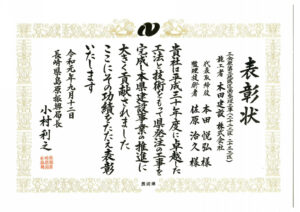 表彰状
施工者 本田建設 株式会社
代表取締役 本田悦弘様
監理技術者 佐原治久様
貴社は平成三十年度に卓越した
工法と技術をもって県発注の工事を
完成し本県建設事業の推進に
大きく貢献されました
ここにその功績をたたえ表彰
いたします
令和元年九月十二日
長崎県島原振興局長
小村利之
長崎県